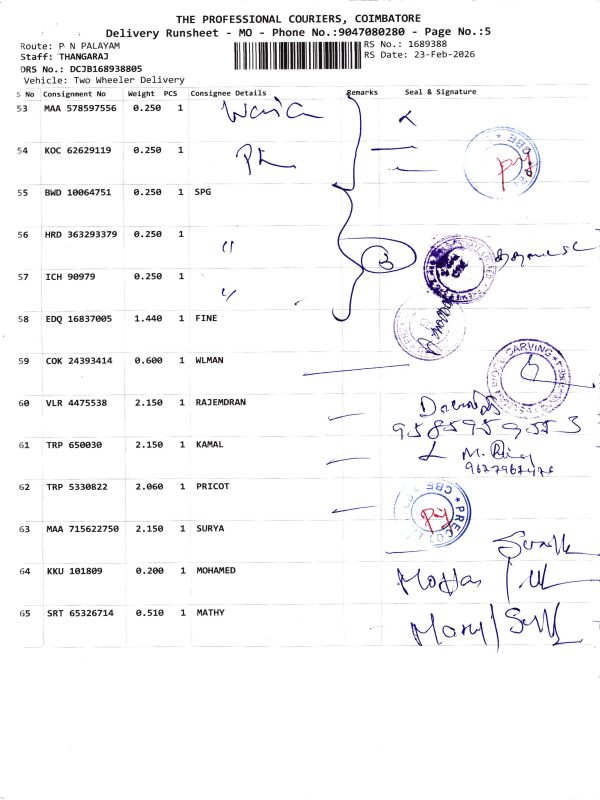 THE PROFESSIONAL COURIERS, COIMBATORE
Delivery Runsheet - MO - Phone No.:9047080280 - Page No.:5
Route: P N PALAYAM
RS No.: 1689388
Staff: THANGARAJ
RS Date: 23-Feb-2026
DRS No.: DCJB168938805
Vehicle: Two Wheeler Delivery
S No Consignment No Weight PCS Consignee Details Remarks Seal & Signature
53 MAA 578597556 0.250 1
54 KOC 62629119 0.250 1
55 BWD 10064751 0.250 1 SPG
56 HRD 363293379 0.250 1 "
3
57 ICH 90979 0.250 1 "
58 EDQ 16837005 1.440 1 FINE
59 COK 24393414 0.600 1 WLMAN
CARVING
60 VLR 4475538 2.150 1 RAJEMDRAN
9585959553
61 TRP 650030 2.150 1 KAMAL
62 TRP 5330822 2.060 1 PRICOT
CBE
63 MAA 715622750 2.150 1 SURYA
64 KKU 101809 0.200 1 MOHAMED
65 SRT 65326714 0.510 1 MATHY